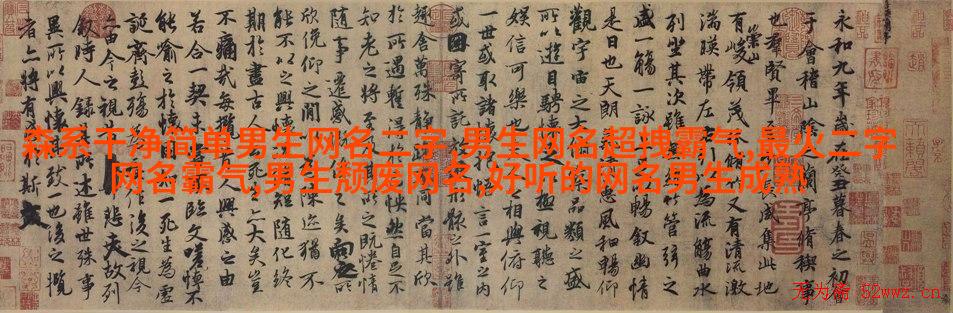 森系干净简单男生网名二字,男生网名超拽霸气,最火二字
网名霸气,男生颓废网名,好听的网名男生成熟
永和九年歲在癸丑暮春之初會
于會稽山陰蘭亭脩稧事
也群賢畢長咸集此地
崇山
有峻領茂又有清流激
湍暎帶左為流觴曲水
列坐其次雖竹管弦之
盛一觴一詠暢敘幽情
是日也天朗惠風和暢仰
觀宇宙之大品類之盛
所以遊目騁極視聽之
娛信可樂也相與俯仰
一世或取諸悟言一室之內
或因寄所形骸之外雖
趣舍萬殊靜同當其欣
於所遇暫得怏然自足不
知老之將至之既惓情
隨事遷感之矣向之所
欣俛仰之閒陳迹猶不
能不以之興短隨化終
期於盡古人大矣豈
不痛哉每攬人興感之由
若合一契臨文嗟悼不
能喻之於懷一死生為虛
誕齊彭殤作後之視今
由今之視悲夫故列
敘時人錄所述雖世殊事
異所以興懷致一也後之攬
者將有於斯文
无为斋 52wwz.cn